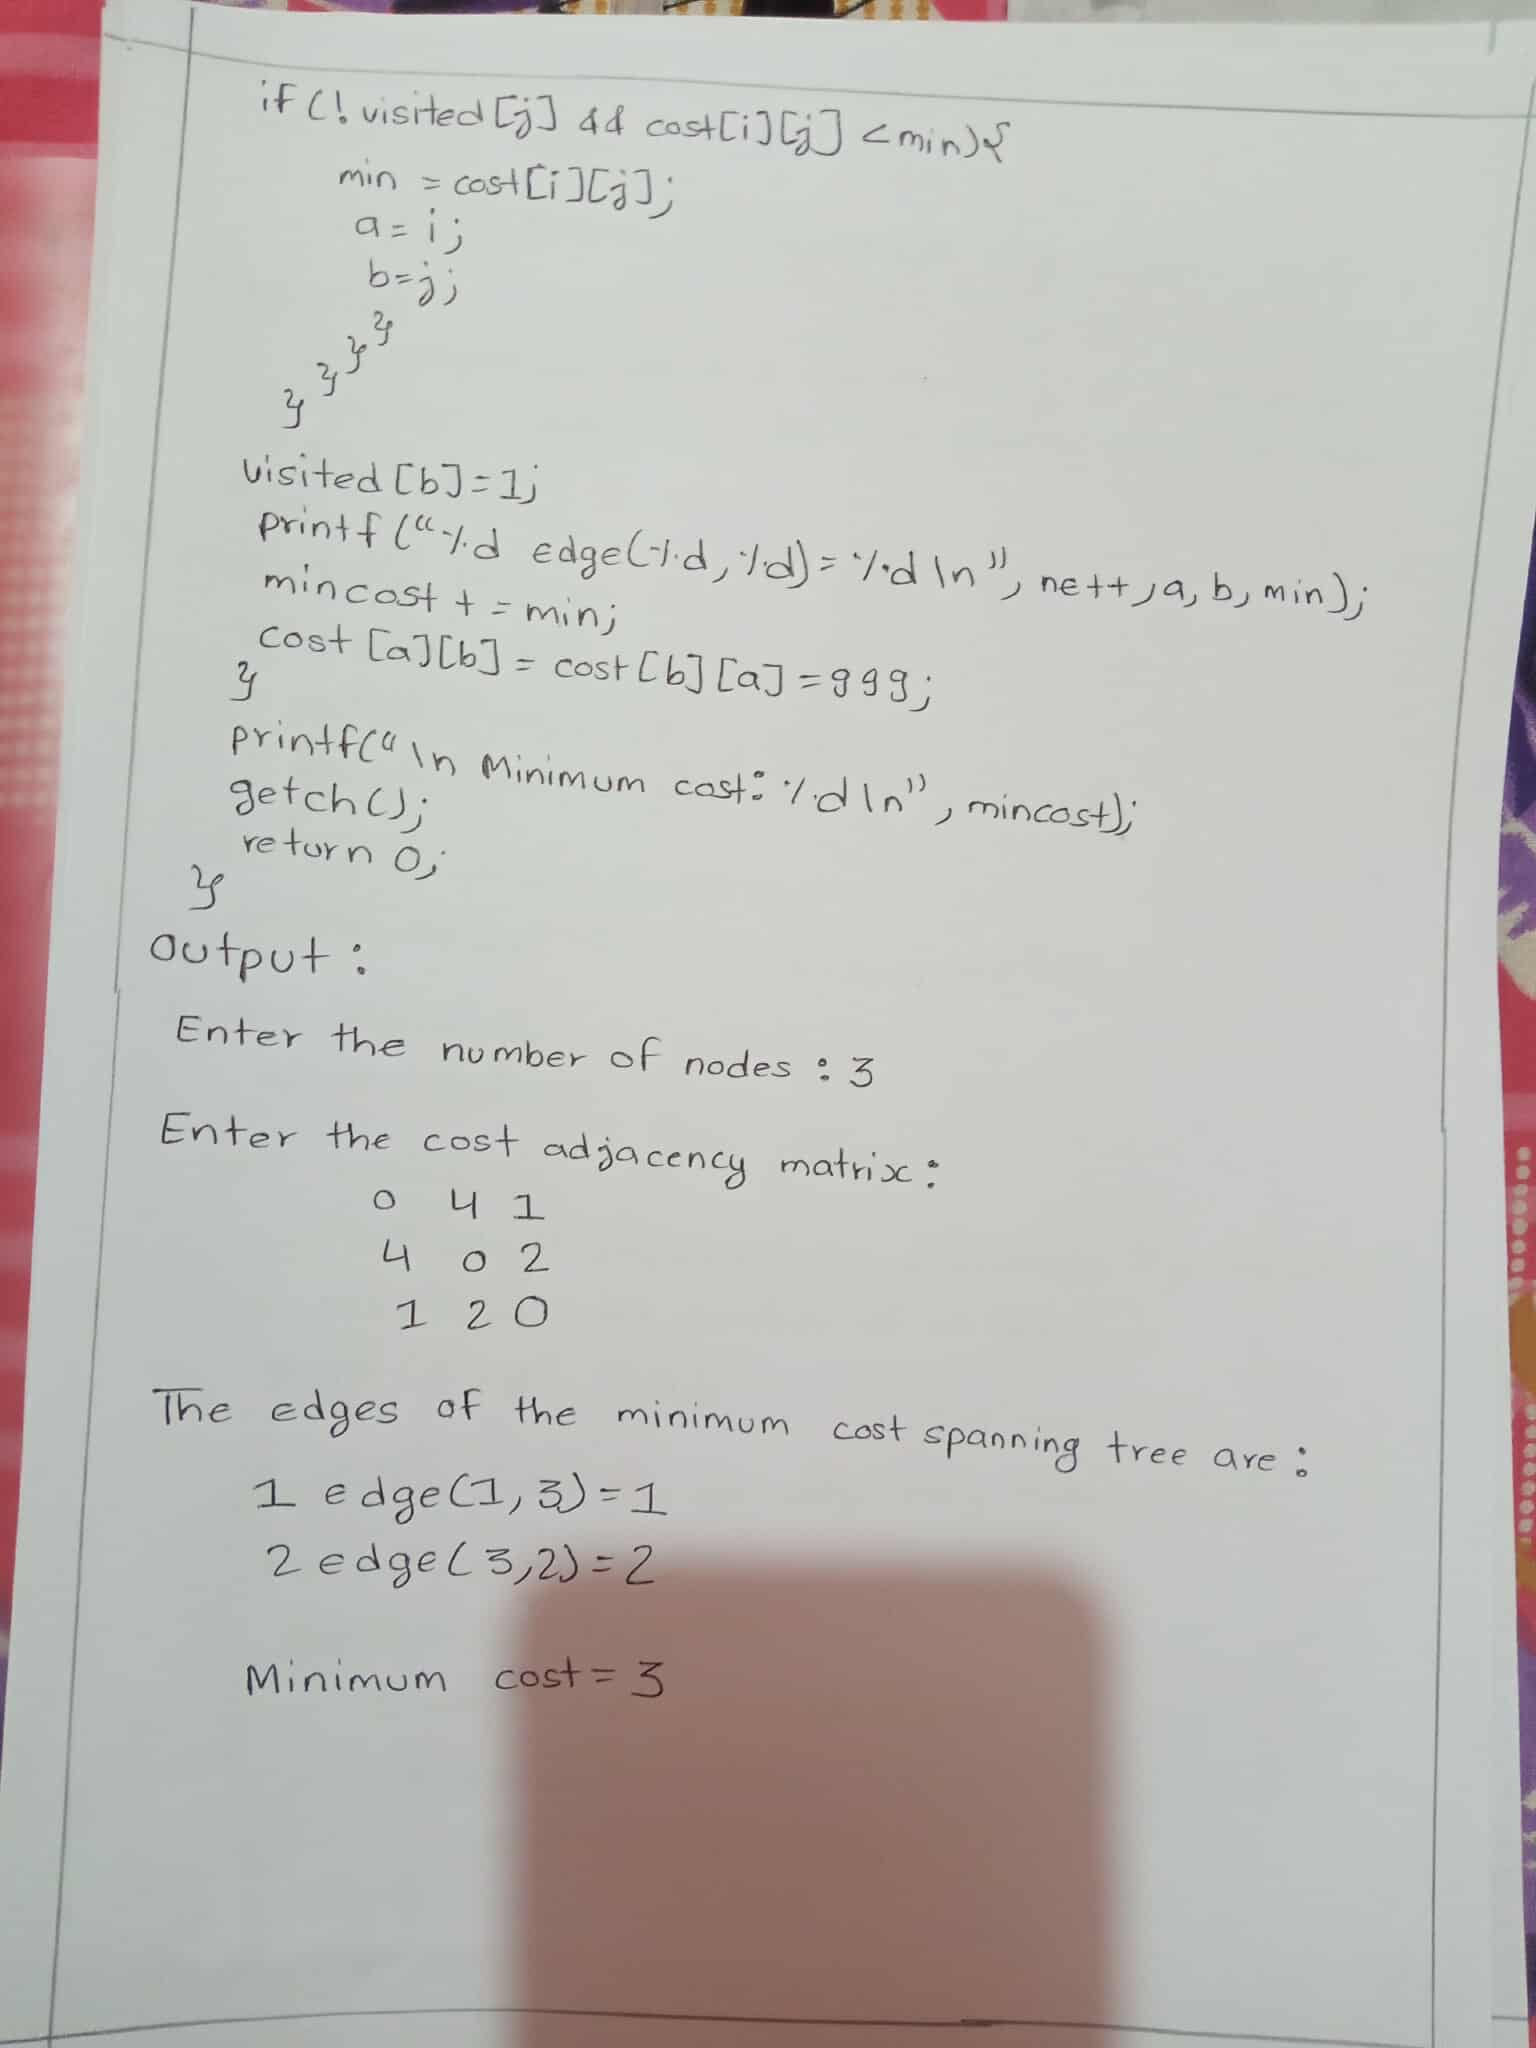 if (! visited [j] && cost[i][j] < min){
min = cost[i][j];
a = i;
b=j;
}
}
}
}
visited [b]=1;
printf ("%d edge(%d, %d) = %d \n", ne++, a, b, min);
mincost + = min;
cost [a][b] = cost [b] [a] = 999;
}
printf("\n Minimum cost: %d \n", mincost);
getch();
return 0;
}
output :
Enter the number of nodes : 3
Enter the cost adjacency matrix :
0 4 1
4 0 2
1 2 0
The edges of the minimum cost spanning tree are :
1 edge(1,3)=1
2 edge(3,2)=2
Minimum cost = 3